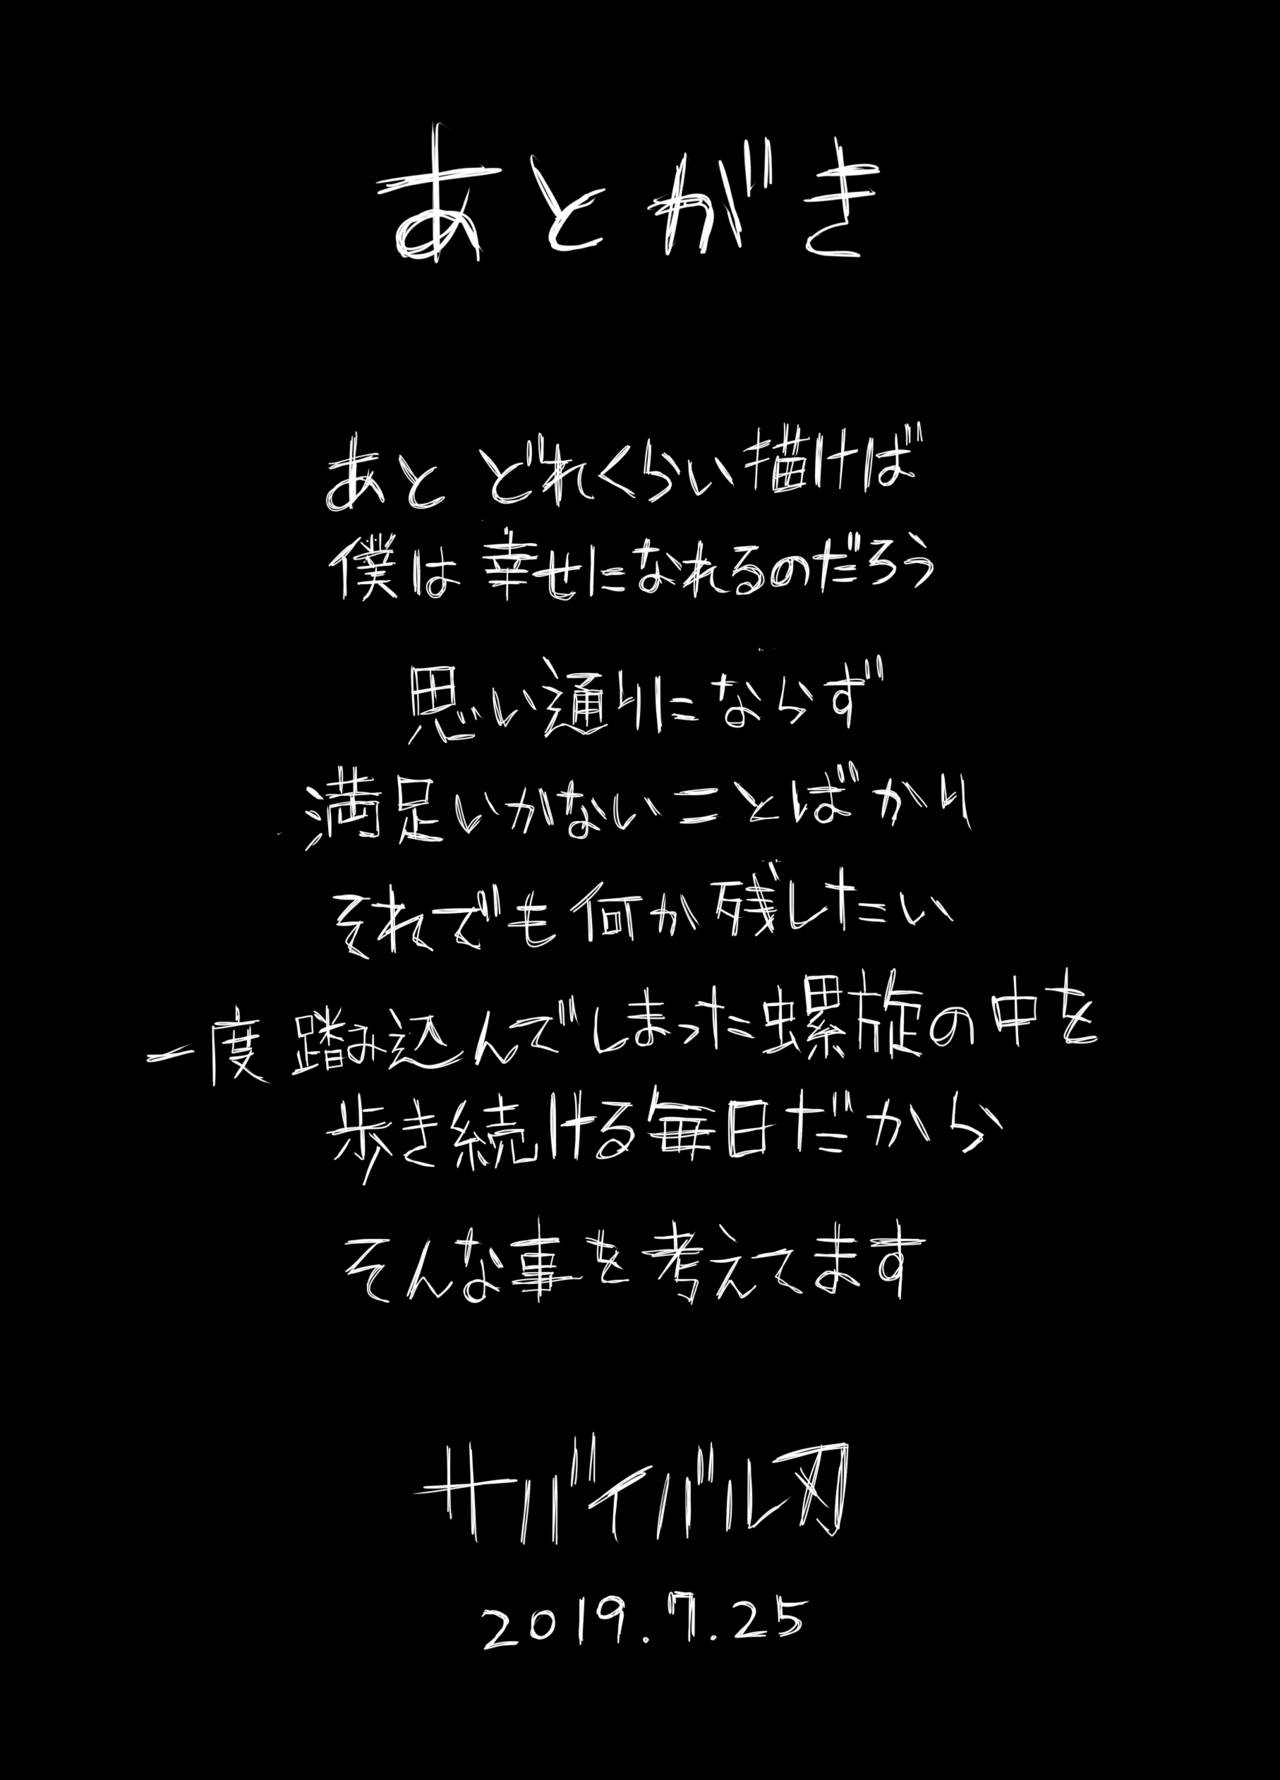 あとがき
あと どれくらい描けば
僕は 幸せになれるのだろう
思い通りにならず
満足いかないことばかり
それでも 何か 残したい
一度 踏み込んでしまった螺旋の中を
歩き続ける毎日だから
そんな事を考えてます
サバイバル刃
2019.7.25